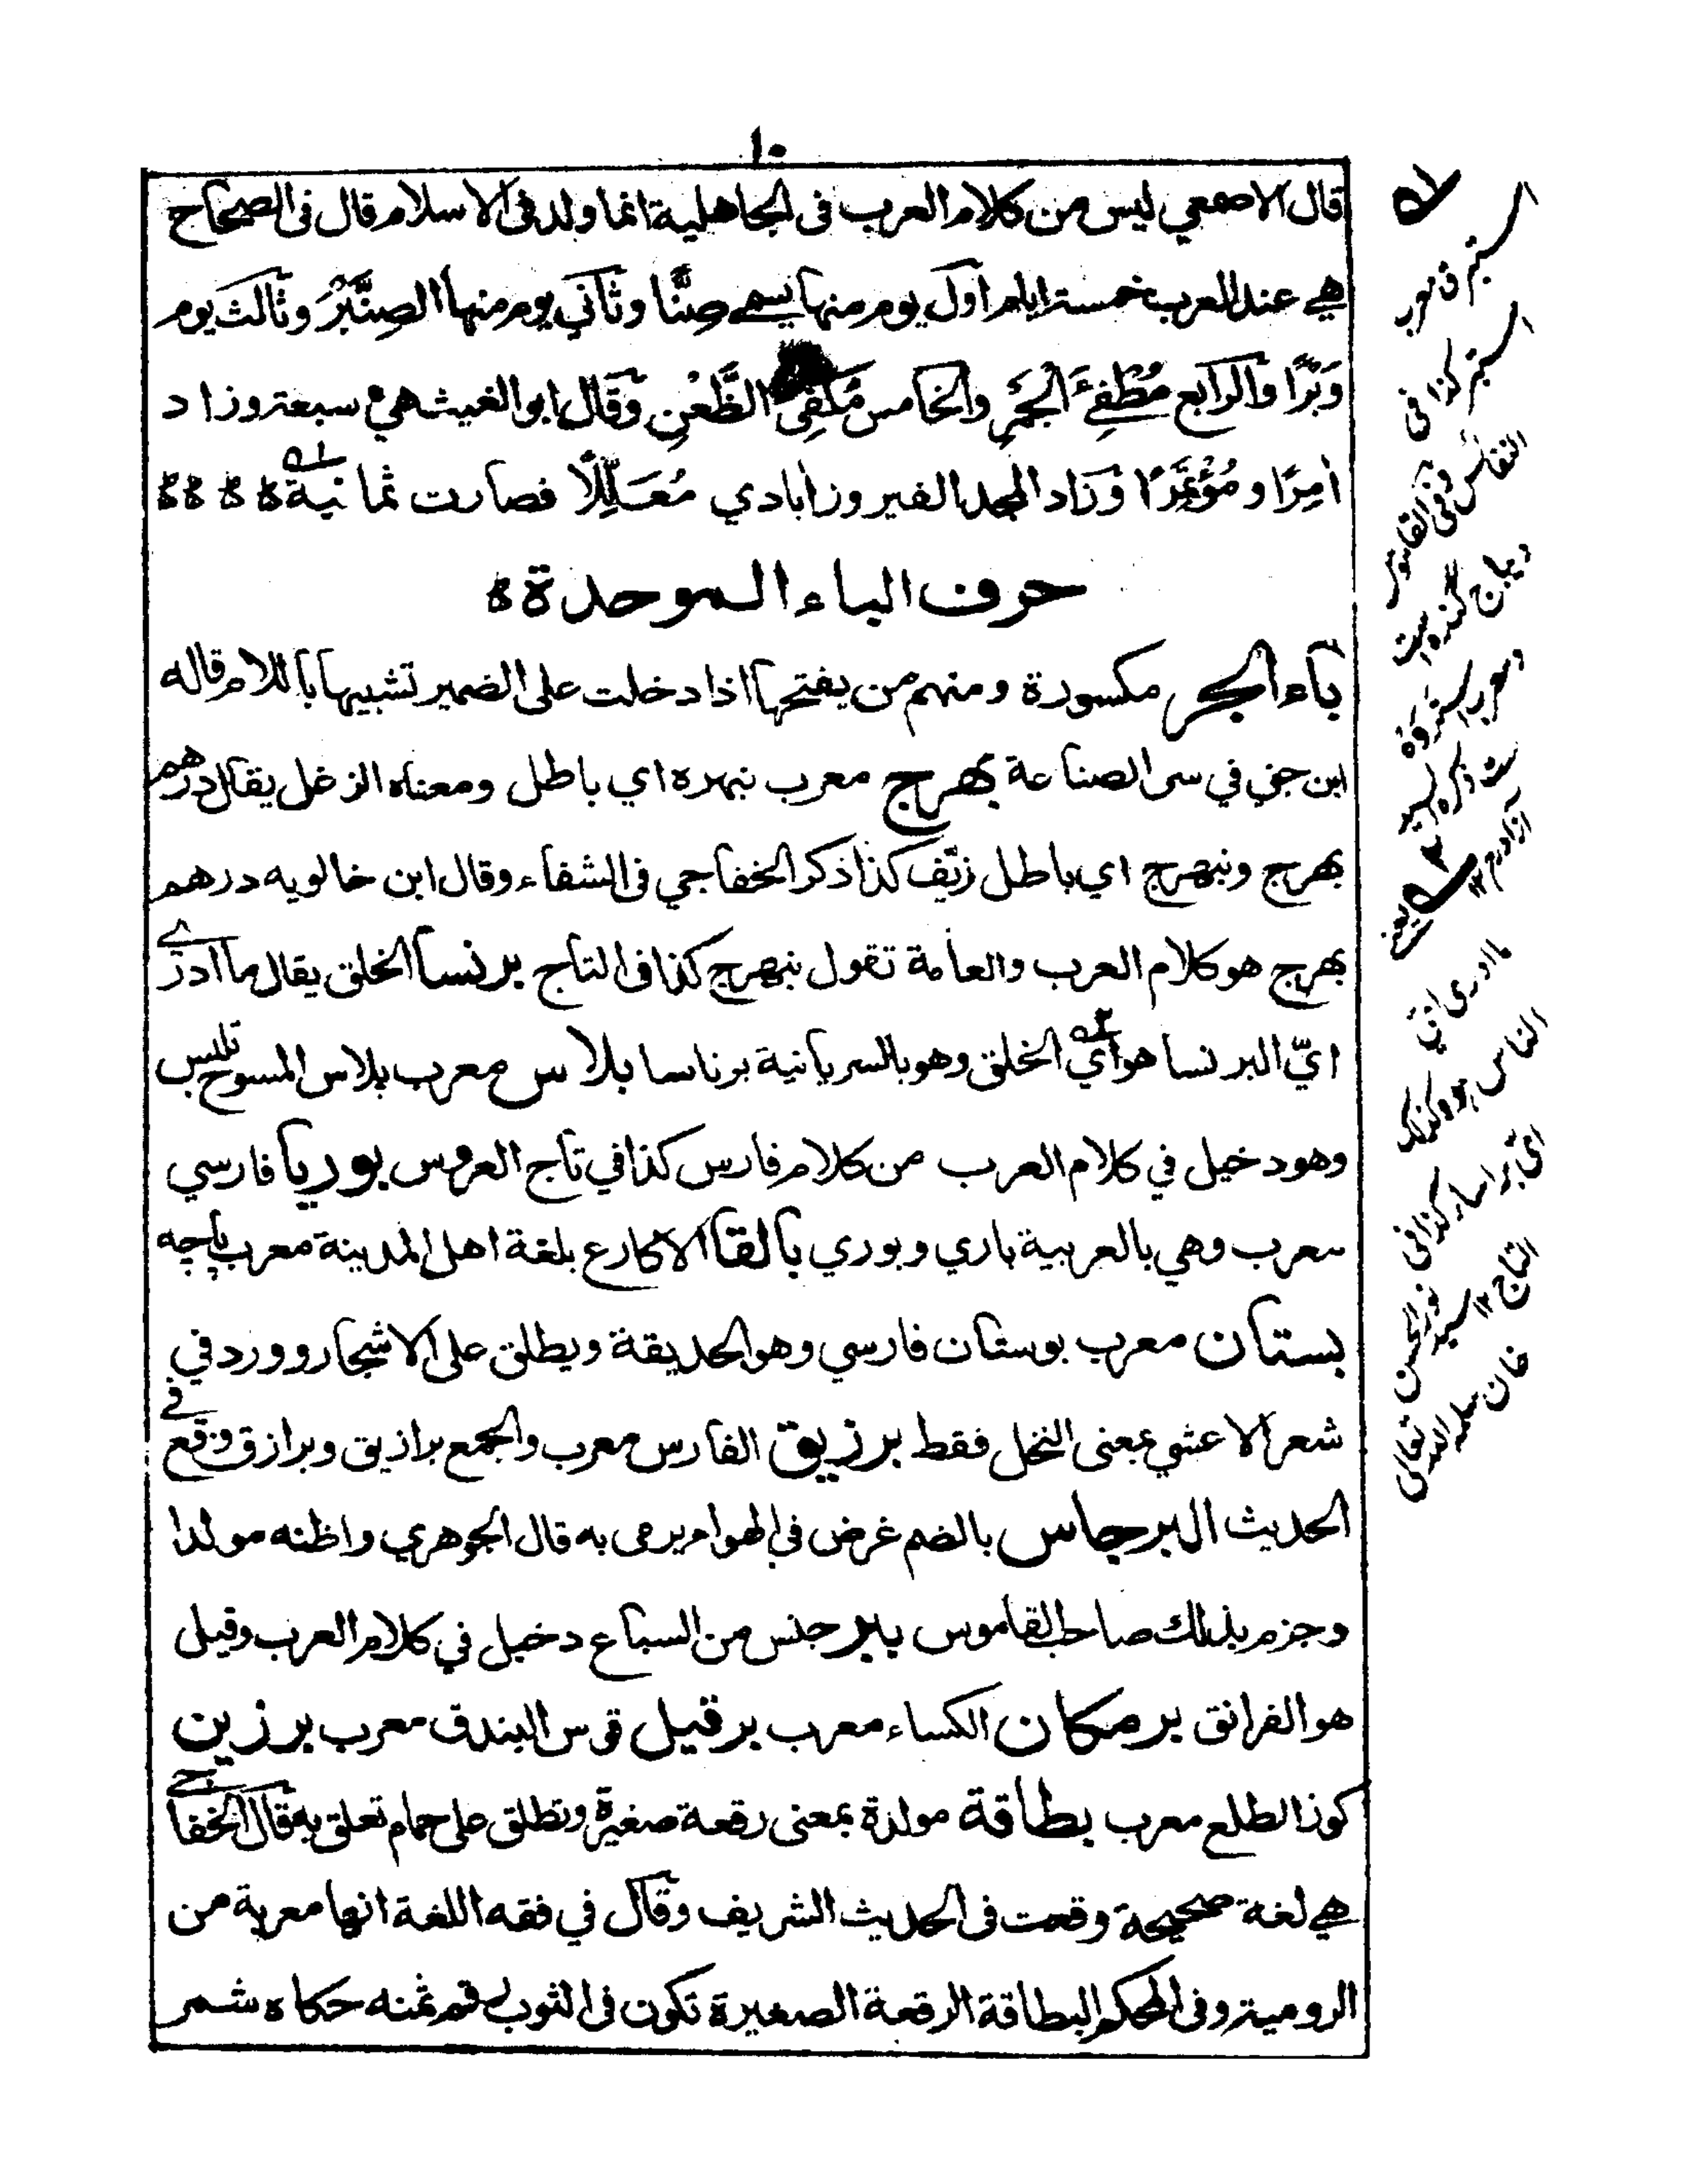 ١٠
قال الاصمعي ليس من كلام العرب فى الجاهلية انما ولد فى الاسلام قال فى الصحاح
هي عند العرب خمسة ايام اول يوم منها يسمے صِنًّا وثاني يوم منها الصِنَّبْرُ وثالث يوم
وَبْرًا والرابع مُطْفِئَ الْجَمْرِ والخامس مُكْفِئَ الظَّعْنِ وقال ابو الغيث هي سبعة وزاد
امِرًا و مُؤْتَمَرًا وزاد المجد الفيروزابادي مُعَلِّلًا فصارت ثمانية
حرف الباء الموحدة
باء الجر مكسورة ومنهم من يفتحها اذا دخلت على الضمير تشبيها باللام قاله
ابن جني في سر الصناعة بهرج معرب نبهره اي باطل ومعناه الزغل يقال درهم
بهرج ونبهرج اي باطل زيّف كذا ذكر الخفاجي فى الشفاء وقال ابن خالويه درهم
بهرج هو كلام العرب والعامة تقول نبهرج كذا فى التاج برنسا الخلق يقال ما ادرے
ايّ البرنسا هو اي الخلق وهو بالسريانية برناسا بلاس معرب پلاس المسوح تلبس
وهو دخيل في كلام العرب من كلام فارس كذا في تاج العروس بوريا فارسي
معرب وهي بالعربية باري وبوري بالقا الاكارع بلغة اهل المدينة معرب پاچه
بستان معرب بوستان فارسي وهو الحديقة ويطلق على الاشجار وورد في
شعر الاعشي بمعنى النخل فقط برزيق الفارس معرب والجمع برازيق وبرازق وقع في
الحديث البرجاس بالضم غرض في الهواء يرمى به قال الجوهري واظنه مولدا
وجزم بذلك صاحب القاموس ببر جنس من السباع دخيل في كلام العرب وقيل
هو الفرانق برمكان الكساء معرب برقيل قوس البندق معرب برزين
كوز الطلع معرب بطاقة مولدة بمعنى رقعة صغيرة وتطلق على حمام تعلق به قال الخفاجے
هي لغة صحيحة وقعت فى الحديث الشريف وقال في فقه اللغة انها معربة من
الرومية وفى المحكم البطاقة الرقعة الصغيرة تكون فى الثوب رقم ثمنه حكاه شمر
ما ادرى اي
الناس هو وكذلك
اي براساء كذا فى
التاج ١٢ سيد
نور الحسن
خان سلمه الله تعالى